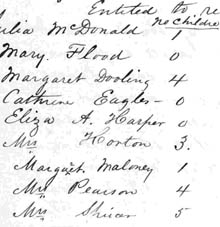 Entitled to re
No Children
ulia McDonald 1
Mary. Flood 0
Margaret Dooling 4
Cathrine Eagles - 0
Eliza A. Harper 0
Mrs Horton 3.
Margaret Maloney 1
Mrs Pearson 4
Mrs 5